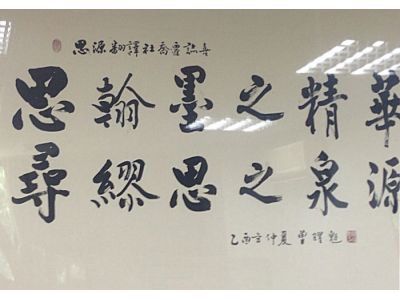 思源翻譯社喬遷誌喜
思翰墨之精華
尋繆思之泉源
乙酉年仲夏